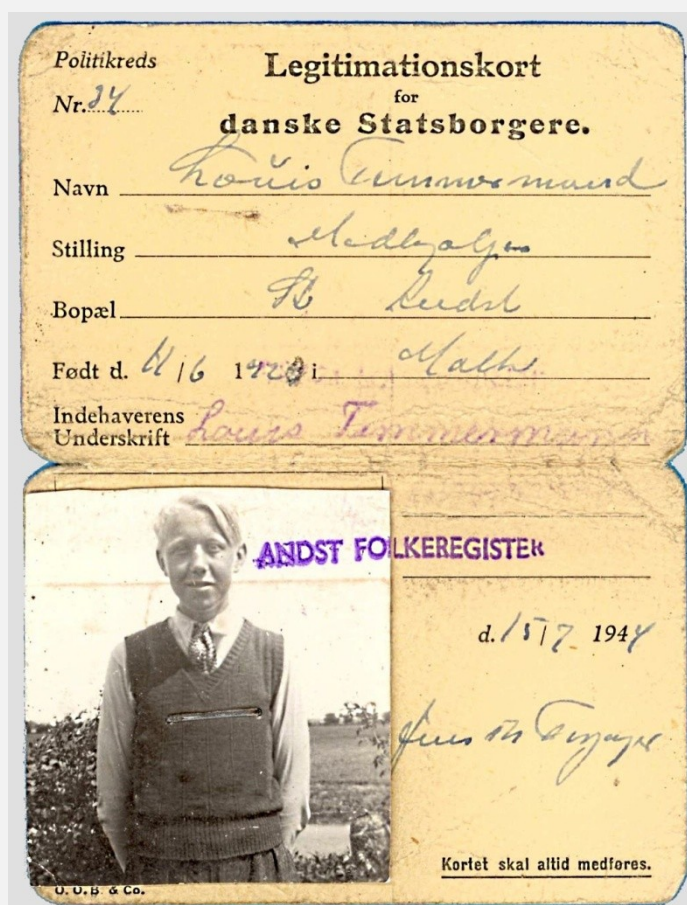 Politikreds
Nr. 34
Legitimationskort
for
danske Statsborgere.
Navn Louis Timmermand
Stilling Medhjælper
Bopæl Andst
Født d. 11/6 192 i
Indehaverens
Underskrift Louis Timmermann
ANDST FOLKEREGISTER
d. 15/7 1944
Kortet skal altid medføres.
O. O. B. & Co.